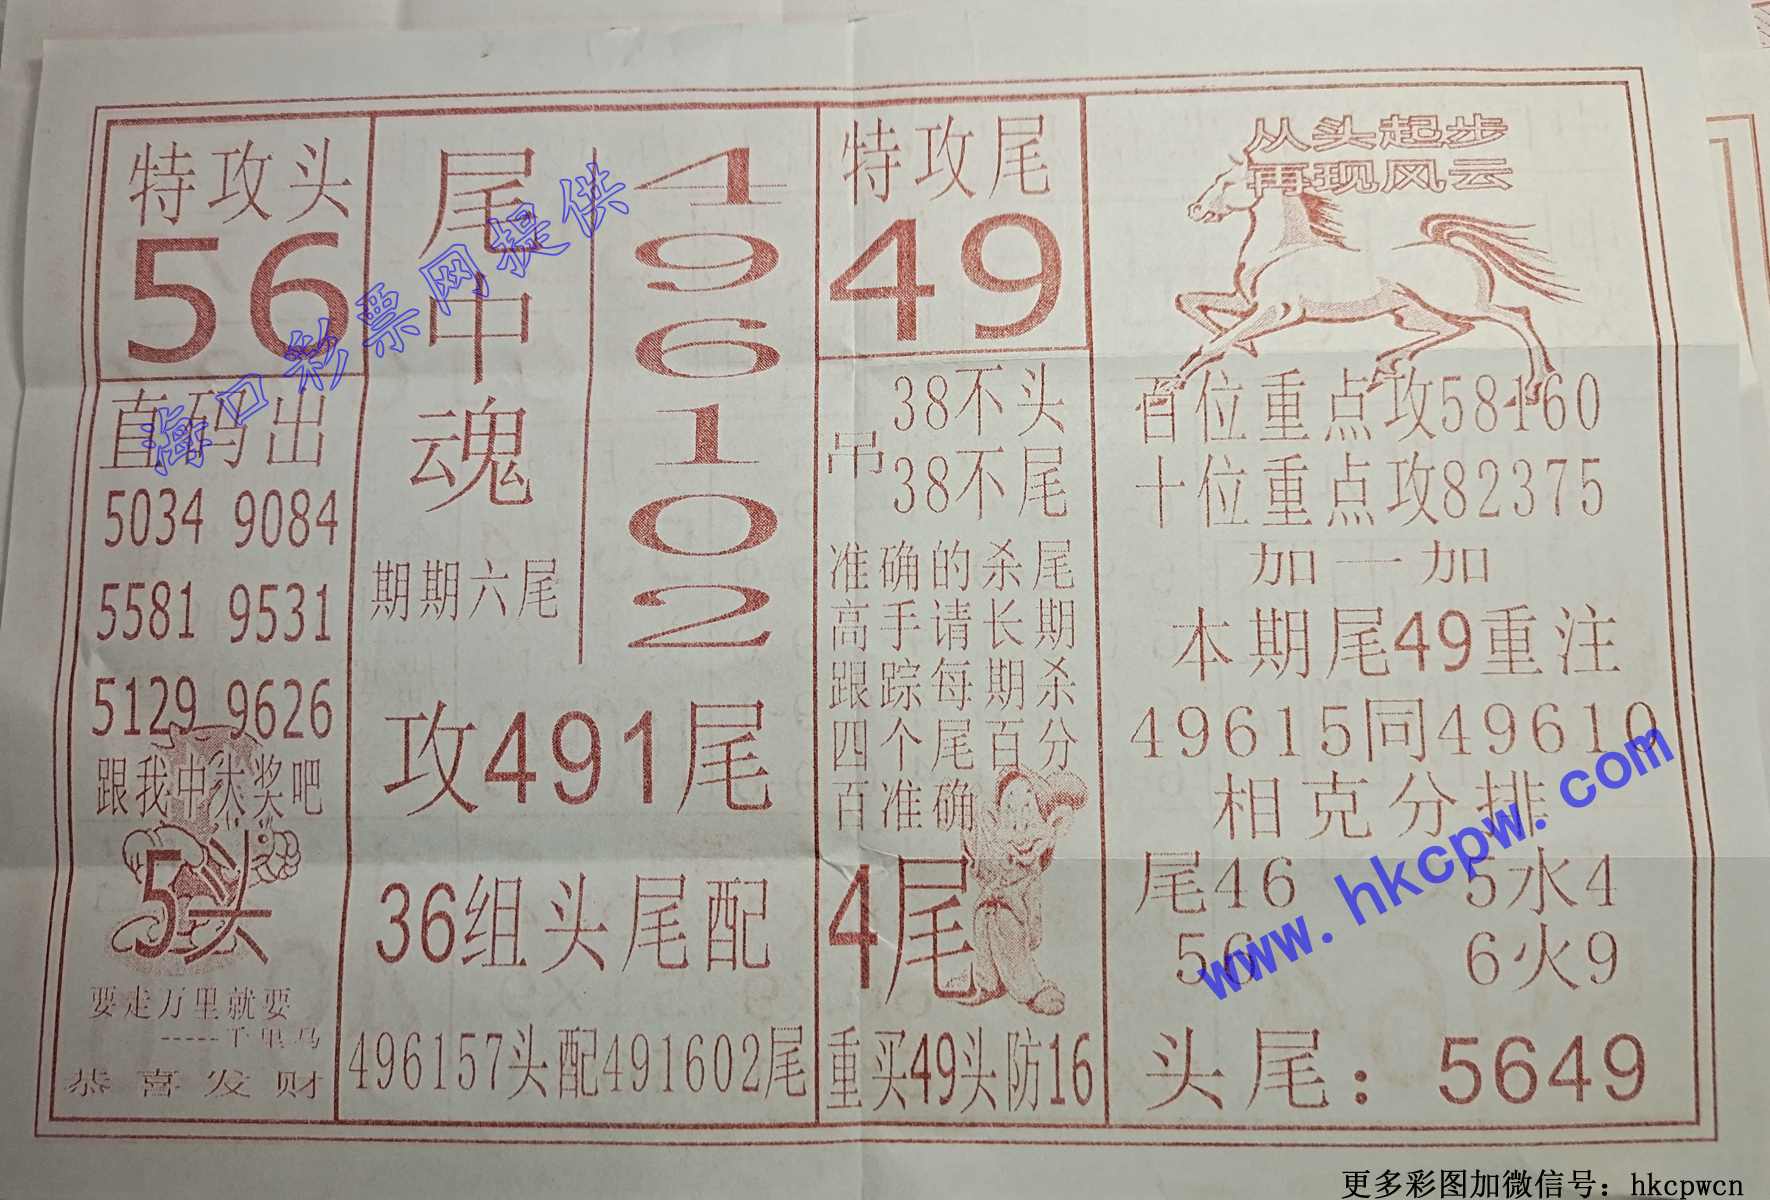 特攻头
56
直码出
5034 9084
5581 9531
5129 9626
跟我中大奖吧
5头
要走万里就要
-----千里马
恭喜发财
尾中魂
期期六尾
4
9
6
1
0
2
攻491尾
36组头尾配
496157头配491602尾
特攻尾
49
吊
38不头
38不尾
准确的杀尾
高手请长期
跟踪每期杀
四个尾百分
百准确
4尾
重买49头防16
从头起步
再现风云
百位重点攻58160
十位重点攻82375
加一加
本期尾49重注
49615同49610
相克分排
尾46 5水4
56 6火9
头尾：5649
海口彩票网提供
www.hkcpw.com
更多彩图加微信号：hkcpwcn